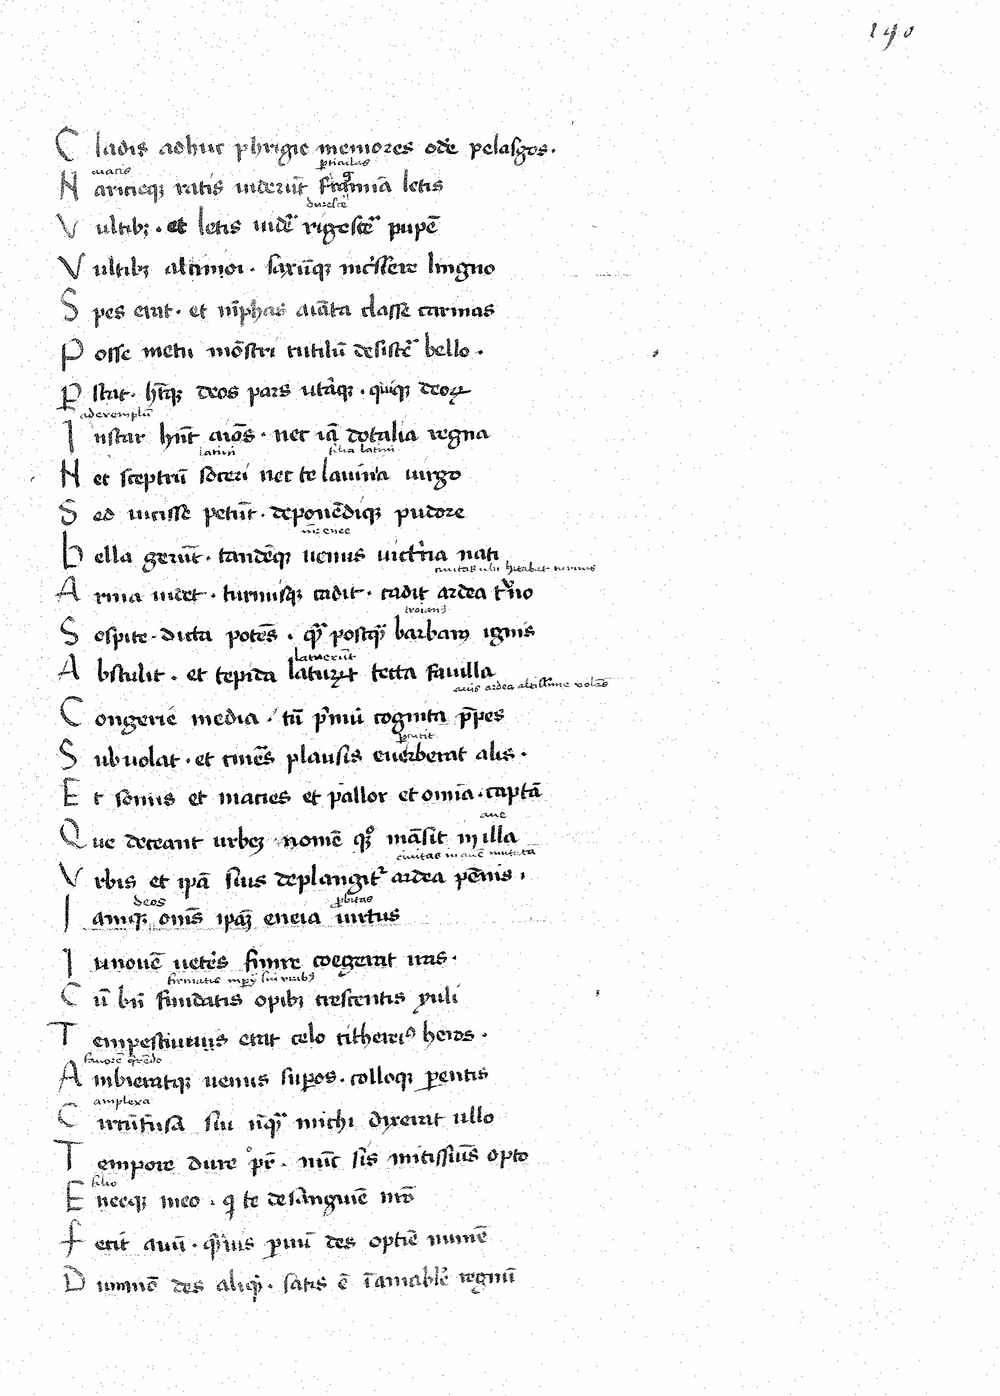 190
Cladis adhuc phrigie memores odẽ pelasgos.
pticulas
uatis
Naricieq; ratis uiderũt fragmĩa letis
durescẽ
Vultib; . et letis uidẽ rigescẽ pupẽ
Vultib; alcinoi . saxũq; incressere lingno
Spes erat . et nĩphas aĩata classe carinas
Posse metu mõstri rutilũ desistẽ bello .
Pstat . hñtq; deos pars utraq; . quiq; deoꝝ
ad exemplũ
Instar hñt aĩos . nec iã dotalia regna
latini filia latini
Nec sceptrũ soceri nec te lauinia uirgo
Sed uicisse petũt . deponẽdiq; pudore
mr̃ enee
Bella gerũt . tandẽq; uenus uictricia nati
ciuitas ubi hitabat turnus
Arma uidet . turnusq; cadit . cadit ardea turno
troianꝰ
Sospite . dicta potẽs . quã postquã barbarꝰ ignis
latuerũt
Abstulit . et tepida latuerũt tecta fauilla
auis ardea altissime volãs
Congerie media . tũ p̃mũ cognita p̃pes
p̱cutit
Subuolat . et cinẽs plausis euerberat alis .
Et sonus et macies et pallor et omĩa . captã
aue
Que deceant urbẽ nomẽ qꝫ mãsit in illa
ciuitas in auẽ mutata
Vrbis et ip̃a suis deplangitr̃ ardea pẽnis .
deos p̱bitas
Iamq; om̃s ip̃aq; eneia uirtus
Iunonẽ uetẽs finire coegerat iras .
firmatis imp̱ij sui viribꝰ
Cũ bñ fundatis opib; crescentis yuli
Tempestiuus erat celo cithereiꝰ heros .
fauorẽ querẽdo
Ambieratq; uenus sup̱os . colloq; p̱entis
amplexa
Circũfusa sui nũqã michi dixerat ullo
Tempore dure pr̃ . nũc sis mitissimꝰ opto
filio
Eneeq; meo . qi te de sanguiẽ nrõ
Fecit auũ . quãuis p̱uũ des optiẽ numẽ
Dummõ des aliqd . satis ẽ ĩamabile regnũ